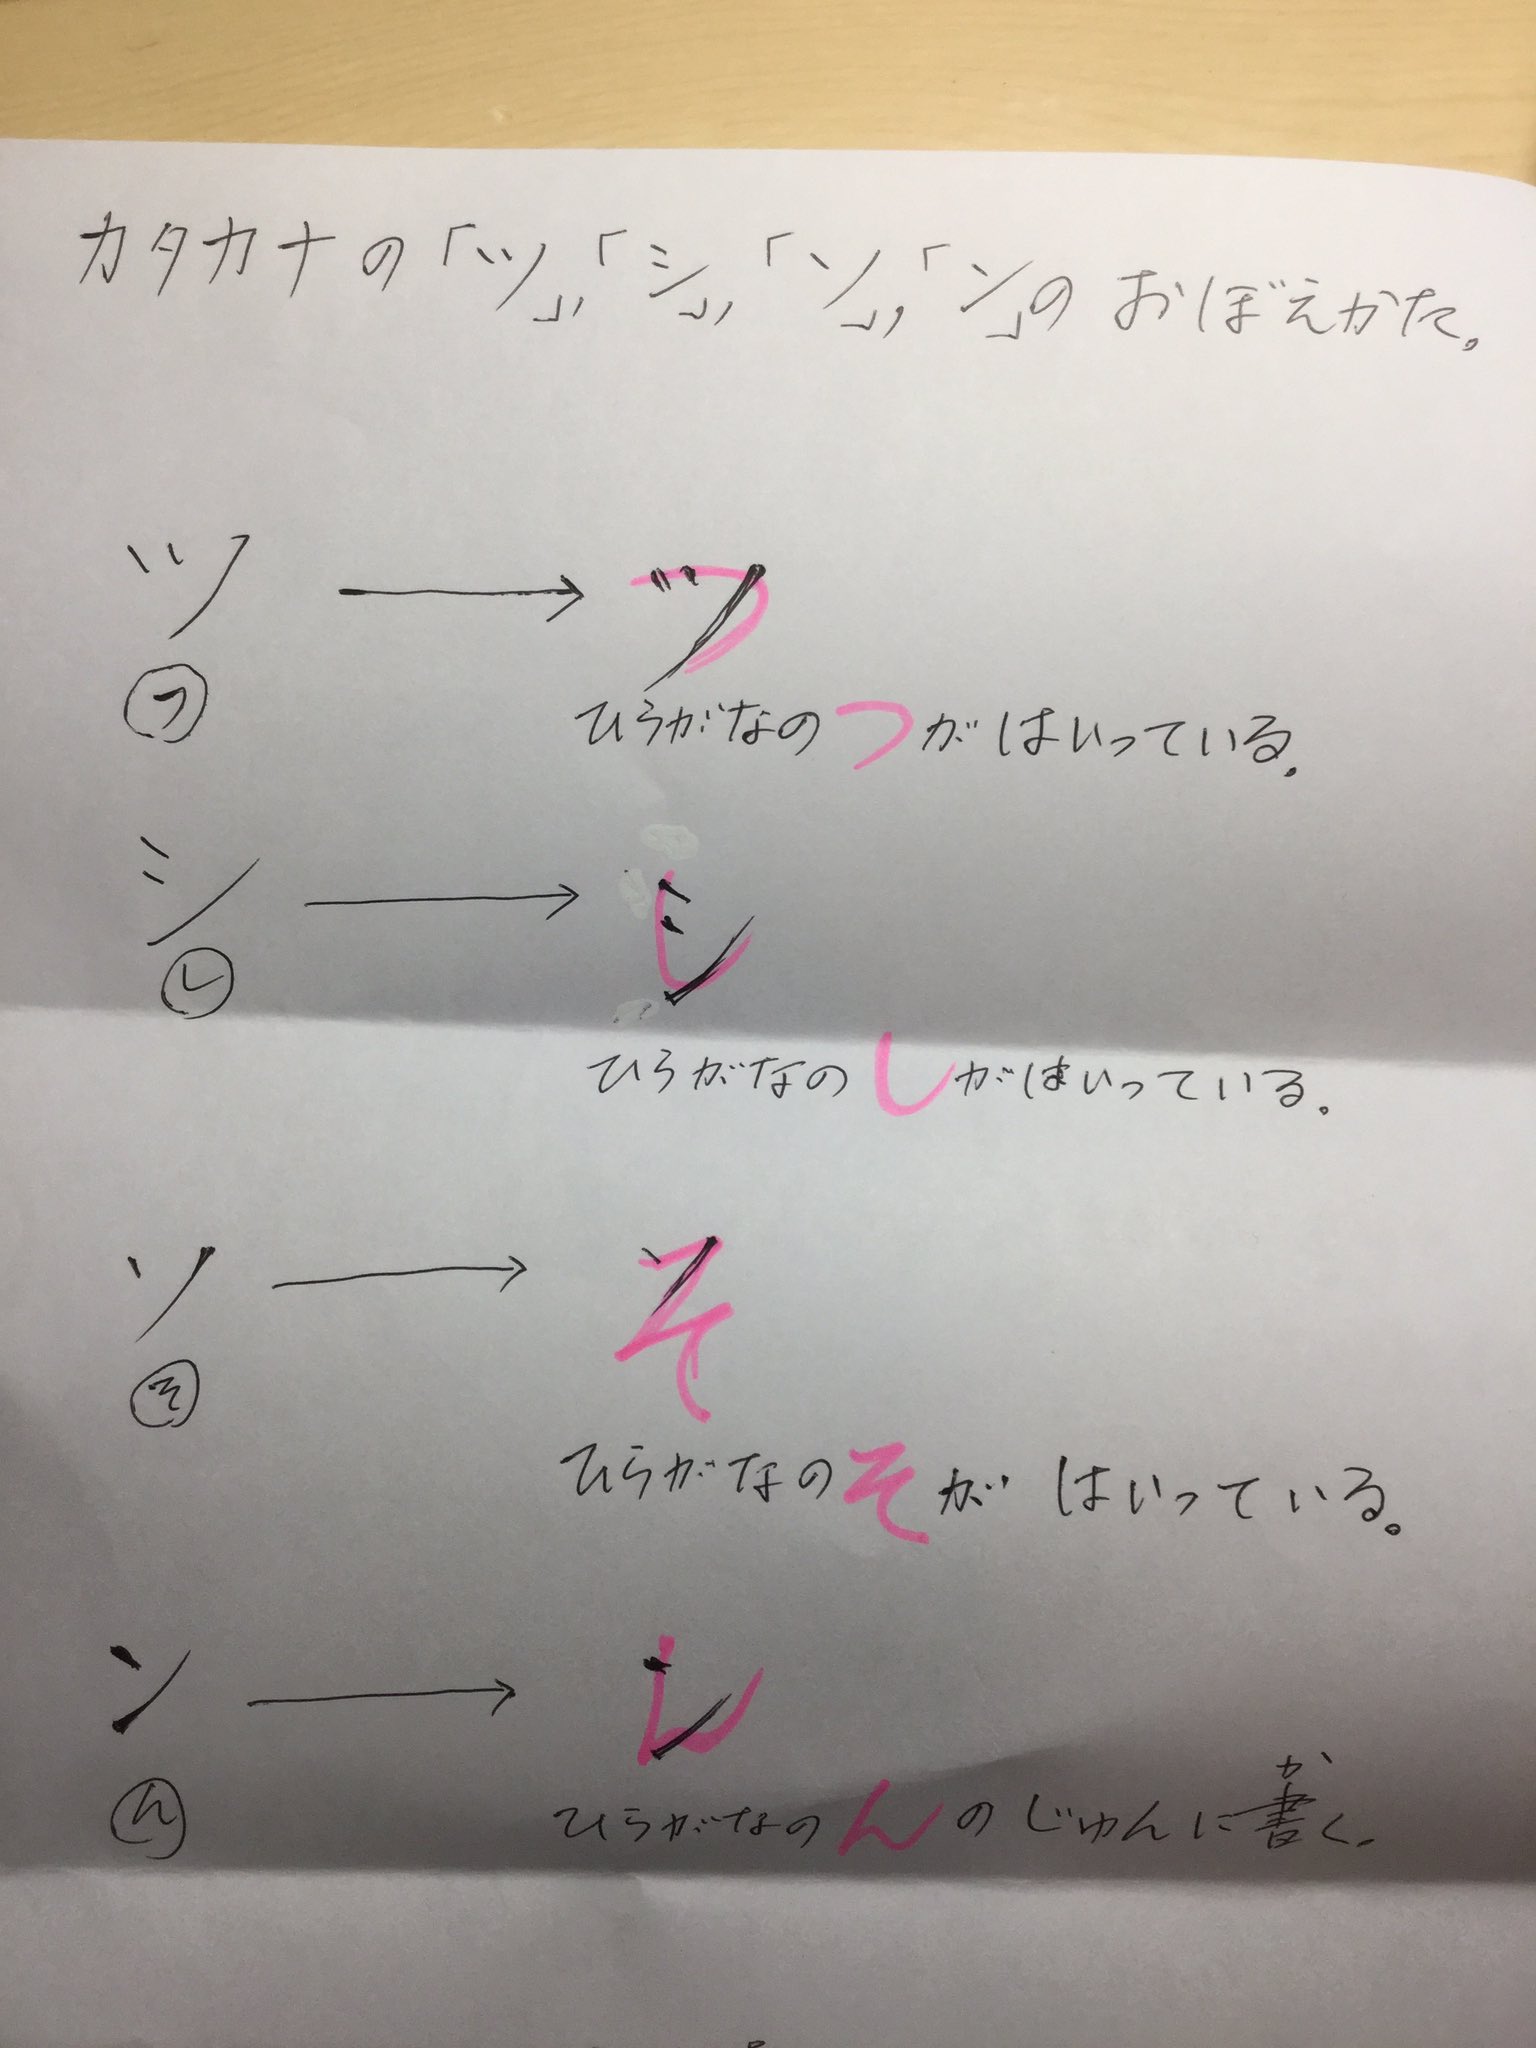 カタカナの「ツ」,「シ」,「ソ」,「ン」の おぼえかた。
ツ → ツ
つ
ひらがなのつがはいっている.
シ → シ
し
ひらがなのしがはいっている.
ソ → そ
そ
ひらがなのそが はいっている。
ン → ん
ん
か
ひらがなのんのじゅんに書く.